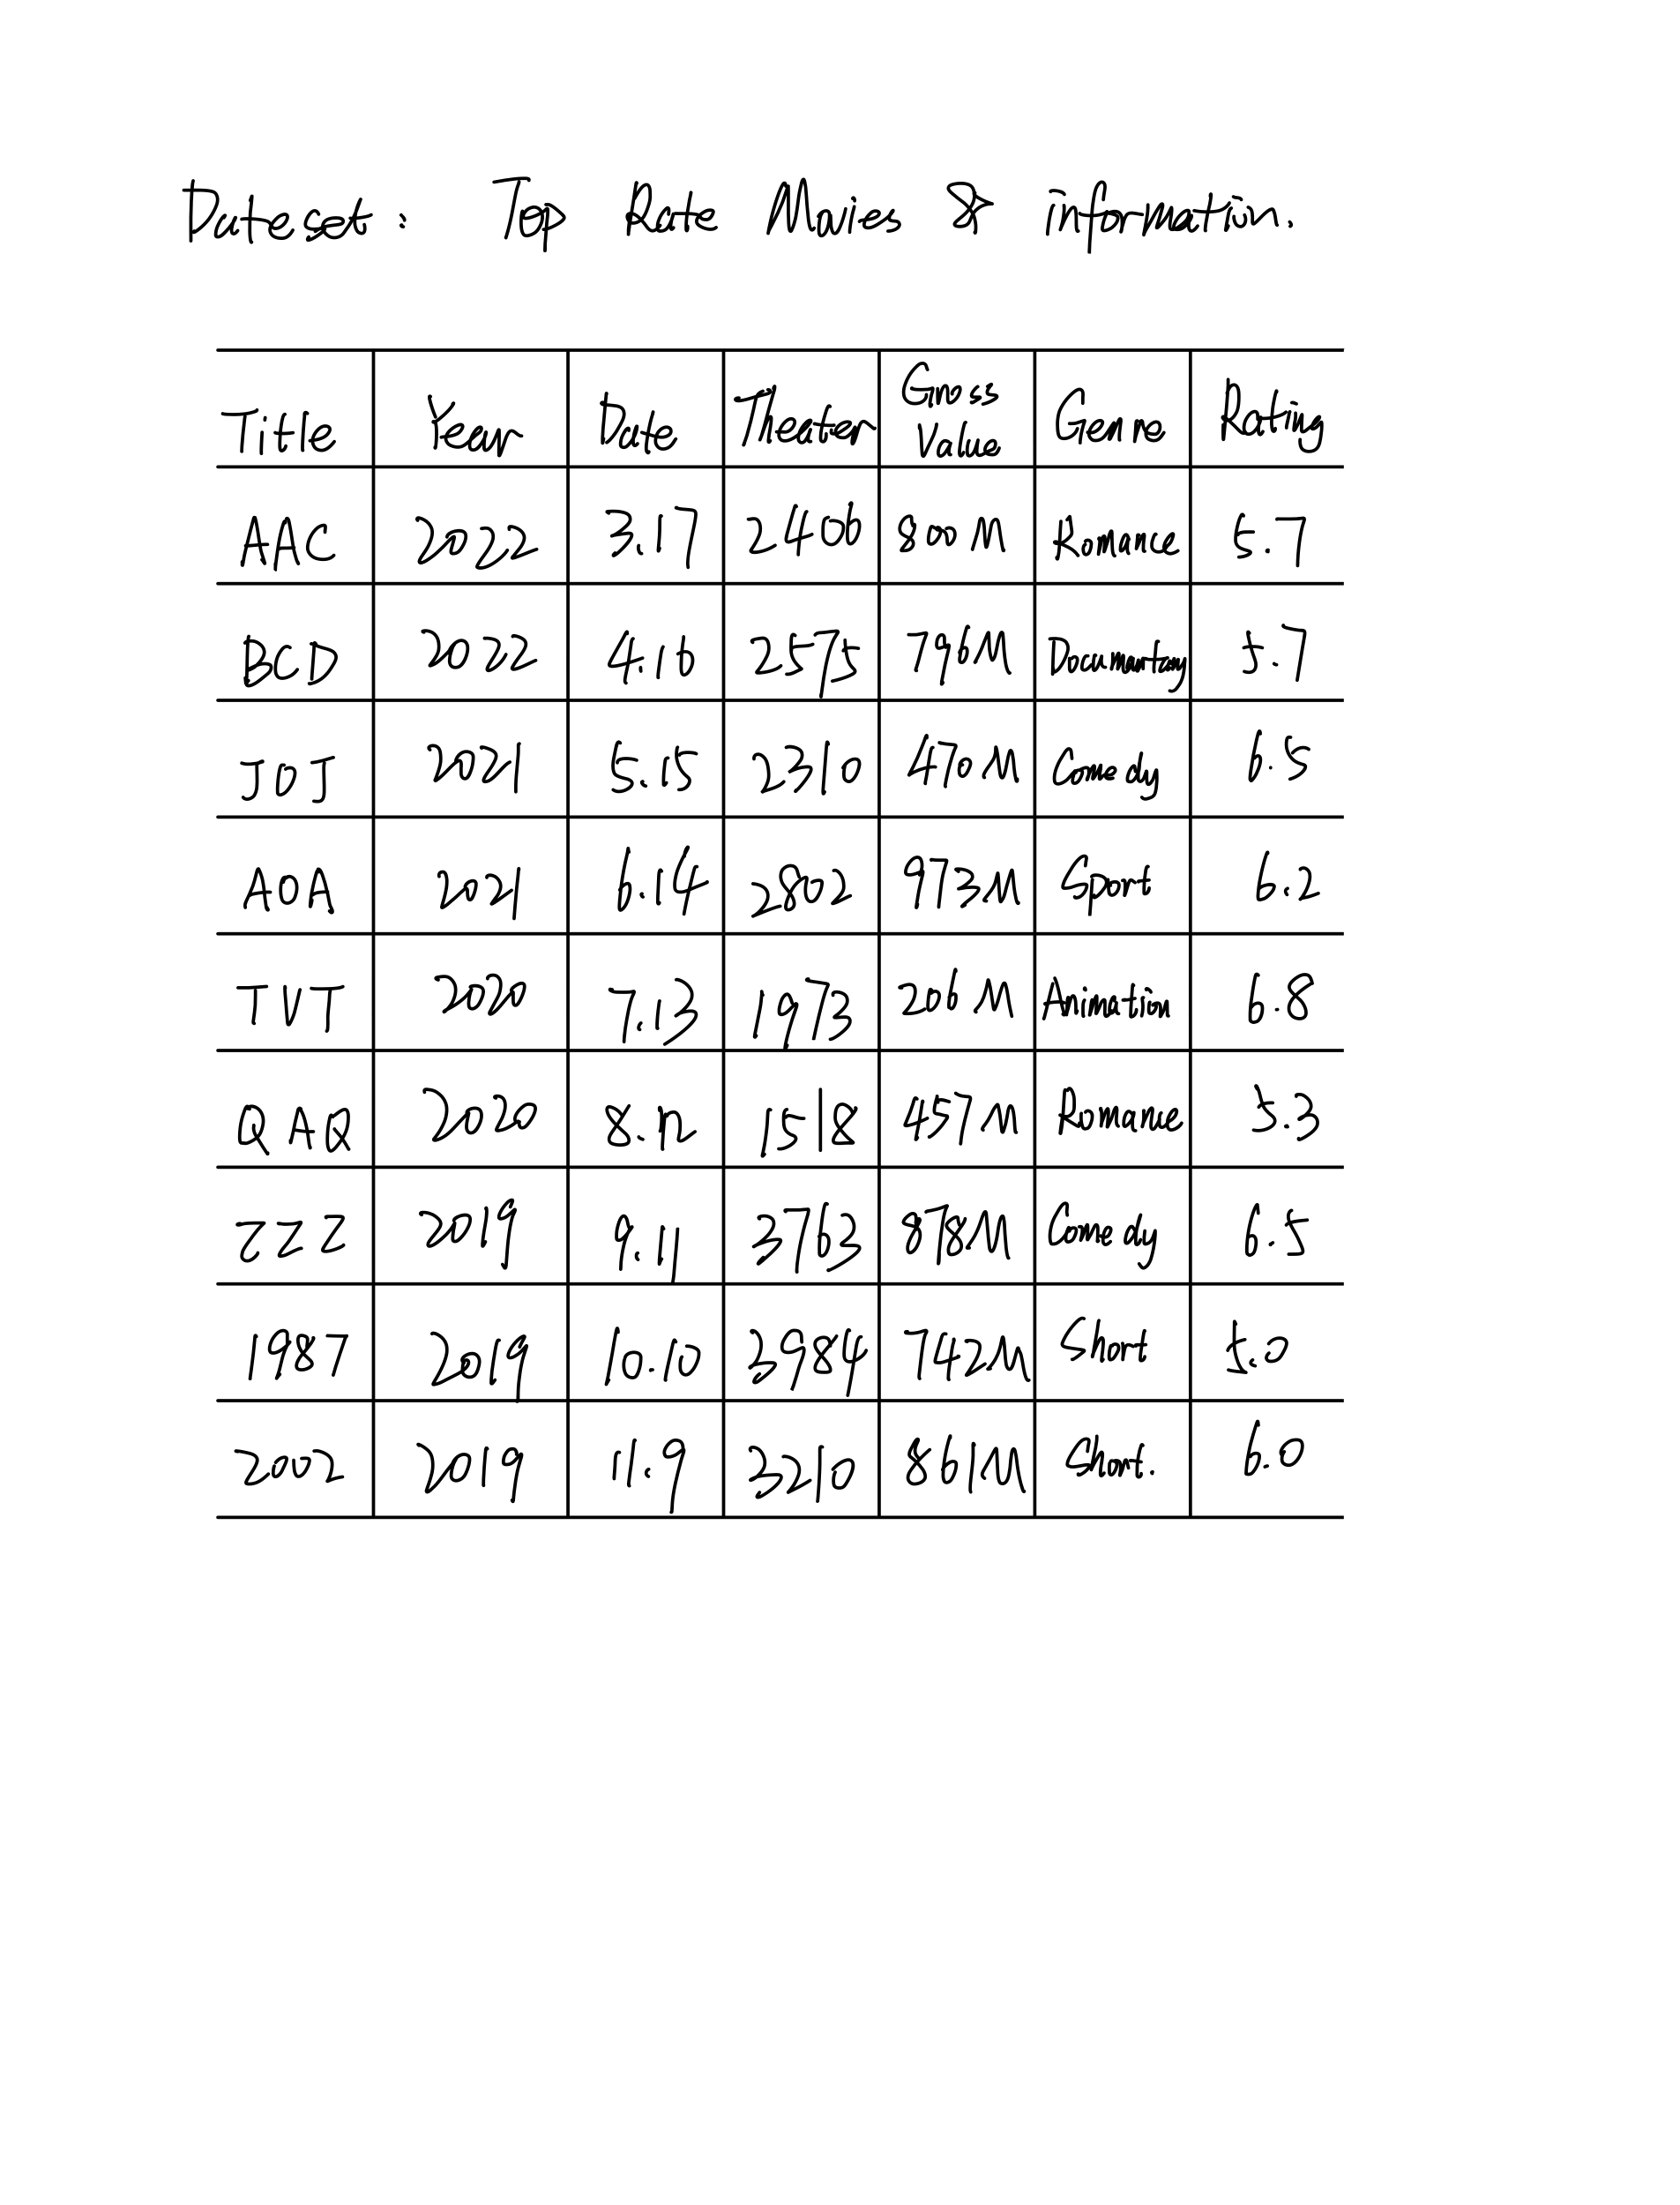 Dataset: Top Rate Movies & information.
Title Year Date Theater Gross Value Genre Rating
AAC 2022 3.17 2406 800M Romance 5.7
BCD 2022 4.16 2575 796M Documantary 5.7
JOJ 2021 5.15 2310 470M Comedy 6.5
AOA 2021 6.14 2802 973M Sport 6.2
TVT 2020 7.13 1973 206M Animation 6.8
QAQ 2020 8.12 1518 457M Romance 5.3
ZZZ 2019 9.11 3763 878M Comedy 6.5
1987 2019 10.10 3984 742M Short 5.0
2002 2019 11.9 3210 861M Short. 6.0